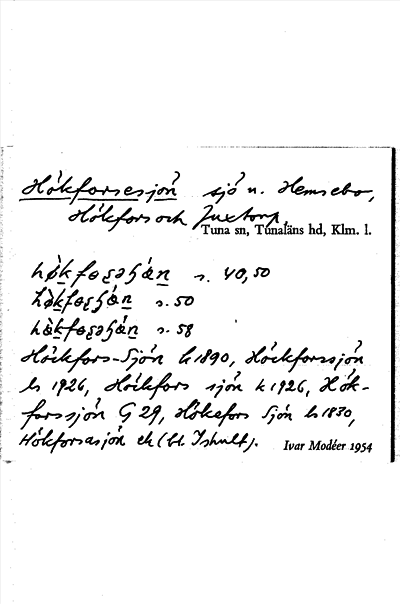 Hökforsesjön sjö u. Hemsebo,
Hökfors och Juxtorp,
Tuna sn, Tunaläns hd, Klm. l.
s. 40,50
s. 50
s. 58
Höckfors-Sjön k 1890, Höckforssjön
ls 1926, Höckfors sjön k 1926, Hök-
forssjön G 29, Hökefors Sjön ls 1830,
Hökforsasjön ek (bl. Ishult).
Ivar Modéer 1954